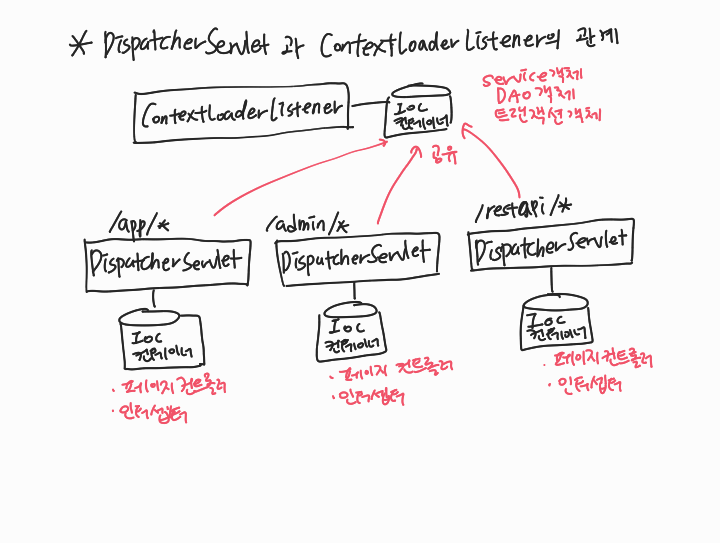 * DispatcherServlet 과 ContextLoaderListener의 관계
ContextLoaderListener
IoC
컨테이너
service객체
DAO객체
트랜잭션객체
공유
/app/*
DispatcherServlet
IoC
컨테이너
· 페이지 컨트롤러
· 인터셉터
/admin/*
DispatcherServlet
IoC
컨테이너
· 페이지 컨트롤러
· 인터셉터
/restapi/*
DispatcherServlet
IoC
컨테이너
· 페이지 컨트롤러
· 인터셉터